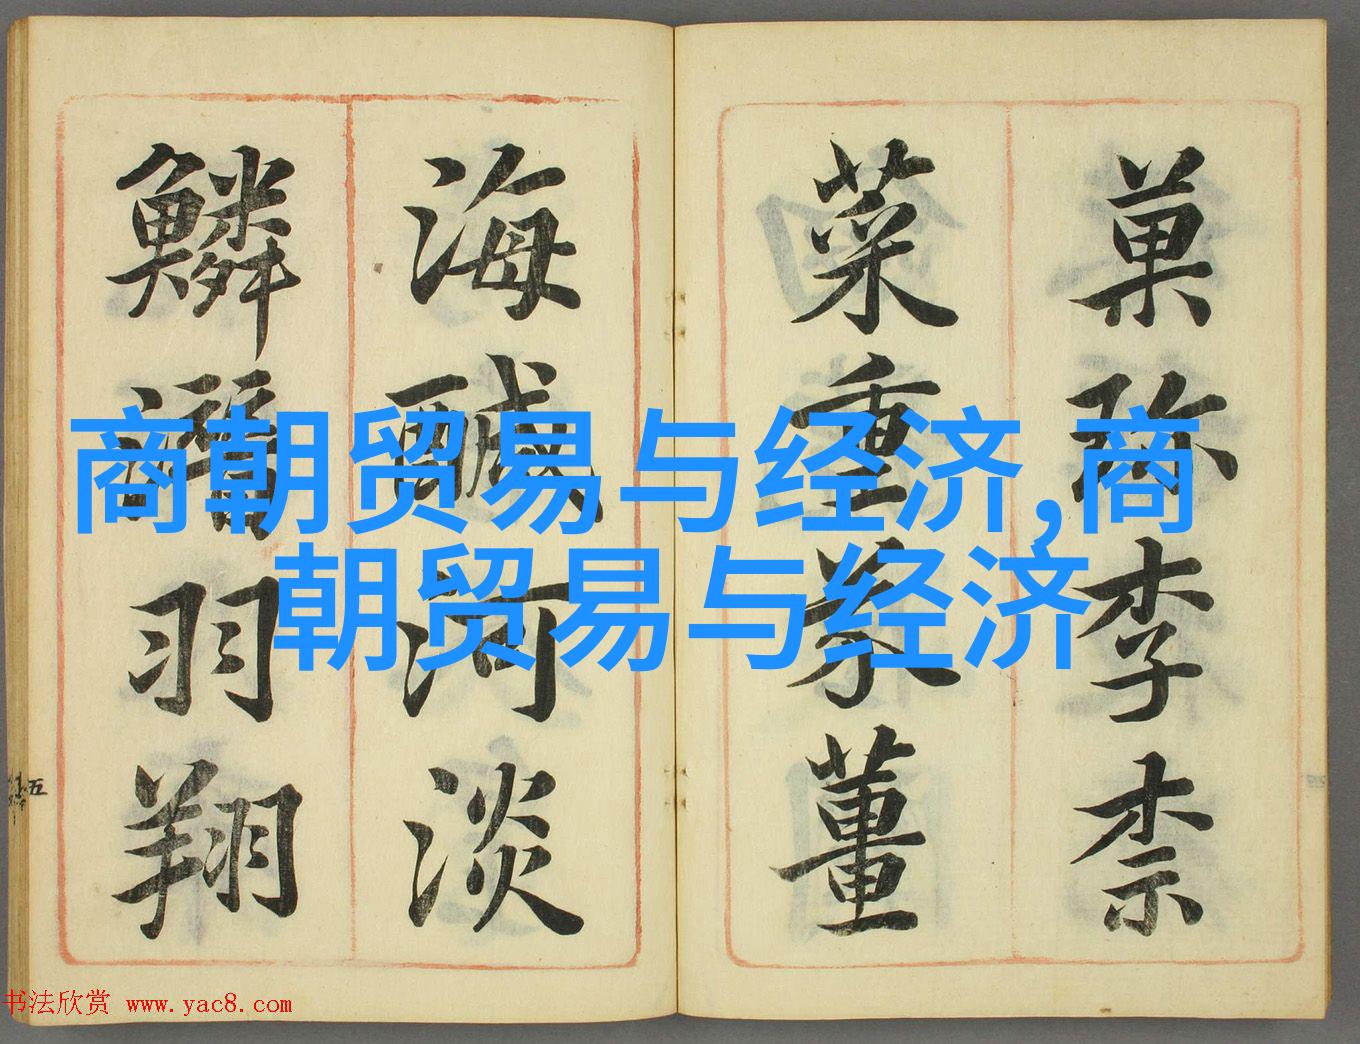 菓珎李柰
菜重芥薑
海醎河淡
鱗潛羽翔
商朝贸易与经济,商
朝贸易与经济
五
书法欣赏 www.yac8.com